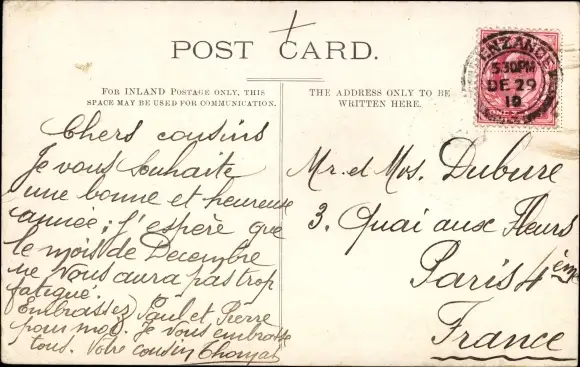 POST CARD.
FOR INLAND POSTAGE ONLY, THIS
SPACE MAY BE USED FOR COMMUNICATION.
THE ADDRESS ONLY TO BE
WRITTEN HERE.
ENZANCE
5.30PM
DE 29
10
Chers cousins
Je vous souhaite
une bonne et heureuse
année; J'espère que
le mois de Decembre
ne vous aura pas trop
fatigué.
Embrassez Paul et Pierre
pour moi. Je vous embrasse
tous. Votre cousin
Mr. et Mos.
3. Quai aux Fleurs
Paris 4ème
France